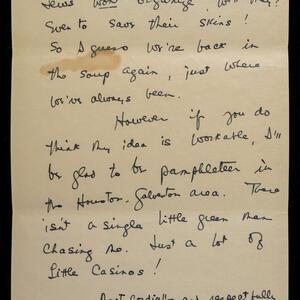 Jews won organize, will they?
Even to save their skins!
So I guess we're back in
the soup again, just where
we've always been.
However if you do
think my idea is workable, I'll
be glad to be pamphleteer in
the Houston-Galveston area. There
isn't a single little green man
chasing me. Just a lot of
Little Casinos!
Most cordially and respectfully